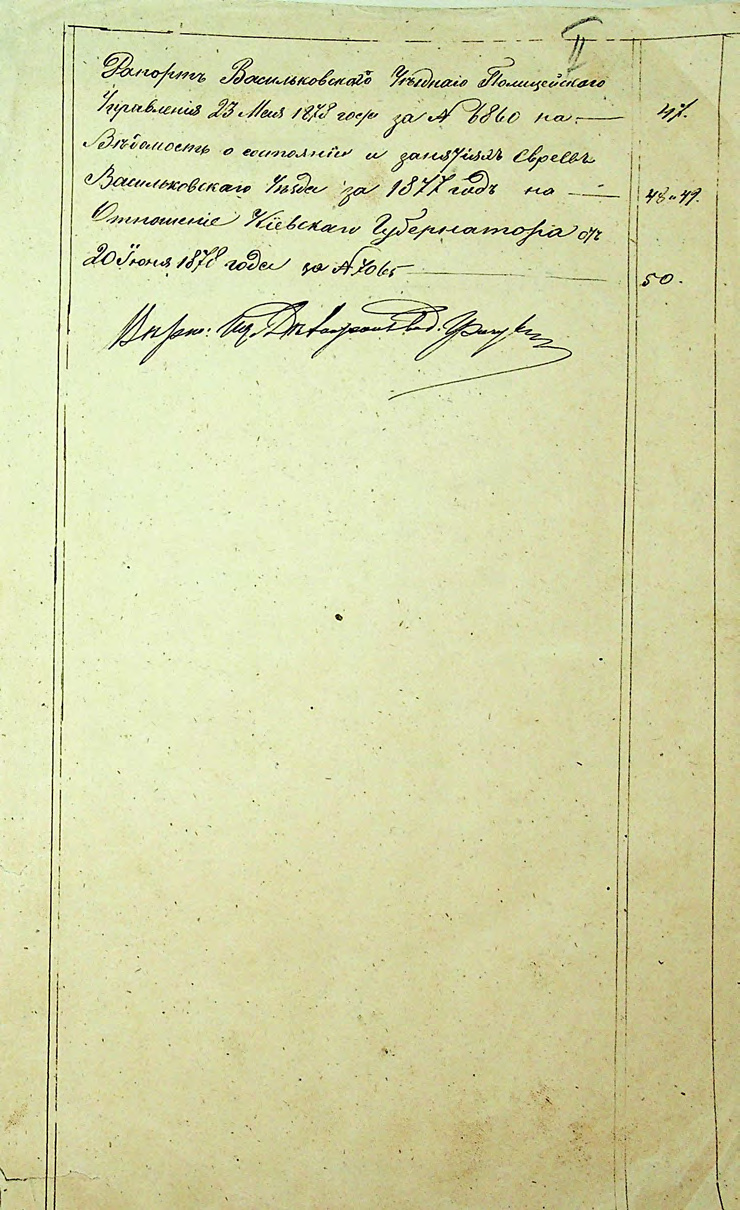 II
Рапортъ Васильковскаго Уѣзднаго Полицейскаго
Управленія 23 Мая 1878 года за № 6860 на — 47.
Вѣдомость о состояніи и занятіяхъ Евреевъ
Васильковскаго Уѣзда за 1877 годъ на — 48 и 49.
Отношеніе Кіевскаго Губернатора отъ
20 Іюня 1878 года за № 7065 — 50.